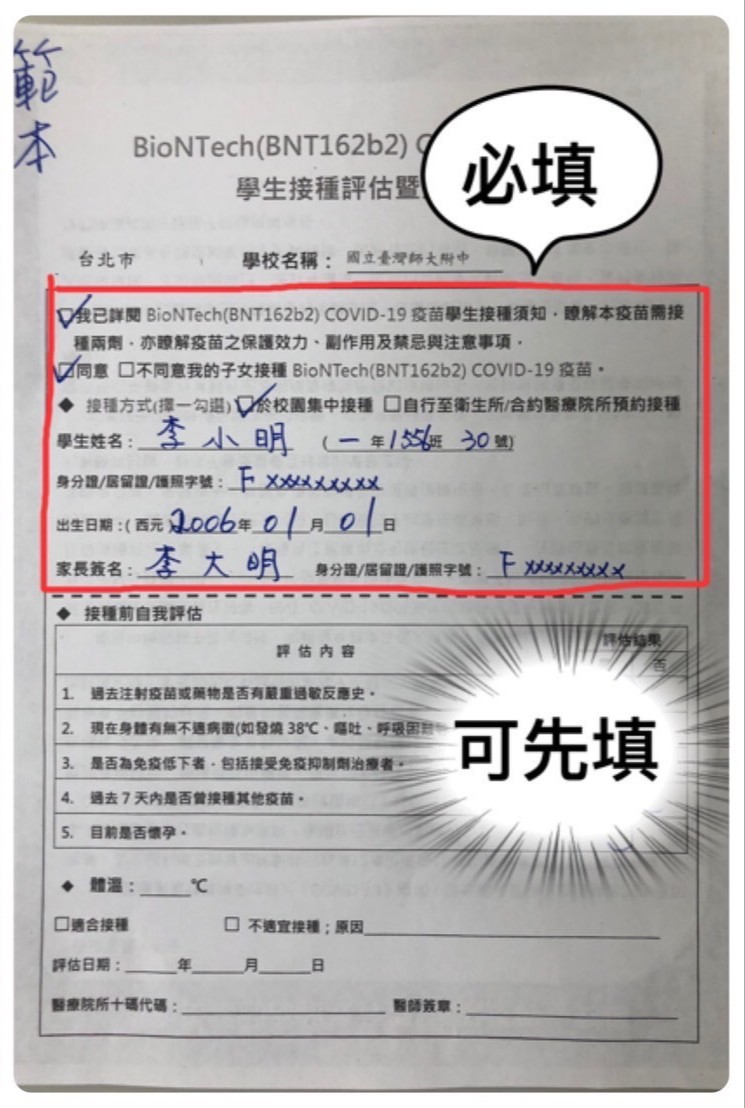 範本
必填
BioNTech(BNT162b2) C
學生接種評估暨
台北市 學校名稱： 國立臺灣師大附中
☑我已詳閱 BioNTech(BNT162b2) COVID-19 疫苗學生接種須知，瞭解本疫苗需接
種兩劑，亦瞭解疫苗之保護效力、副作用及禁忌與注意事項。
☑同意 □不同意我的子女接種 BioNTech(BNT162b2) COVID-19 疫苗。
◆ 接種方式(擇一勾選) ☑於校園集中接種 □自行至衛生所/合約醫療院所預約接種
學生姓名： 李小明 (一年1556班 30號)
身分證/居留證/護照字號： F xxxxxxxxx
出生日期：( 西元 )2006年 01月 01日
家長簽名： 李大明 身分證/居留證/護照字號： F xxxxxxxx
◆ 接種前自我評估
評估內容 評估結果
否
1. 過去注射疫苗或藥物是否有嚴重過敏反應史。
2. 現在身體有無不適病徵(如發燒 38℃、嘔吐、呼吸困難
可先填
3. 是否為免疫低下者，包括接受免疫抑制劑治療者。
4. 過去 7 天內是否曾接種其他疫苗。
5. 目前是否懷孕。
◆ 體溫：_____℃
□適合接種 □ 不適宜接種；原因
評估日期：______年______月______日
醫療院所十碼代碼： 醫師簽章：